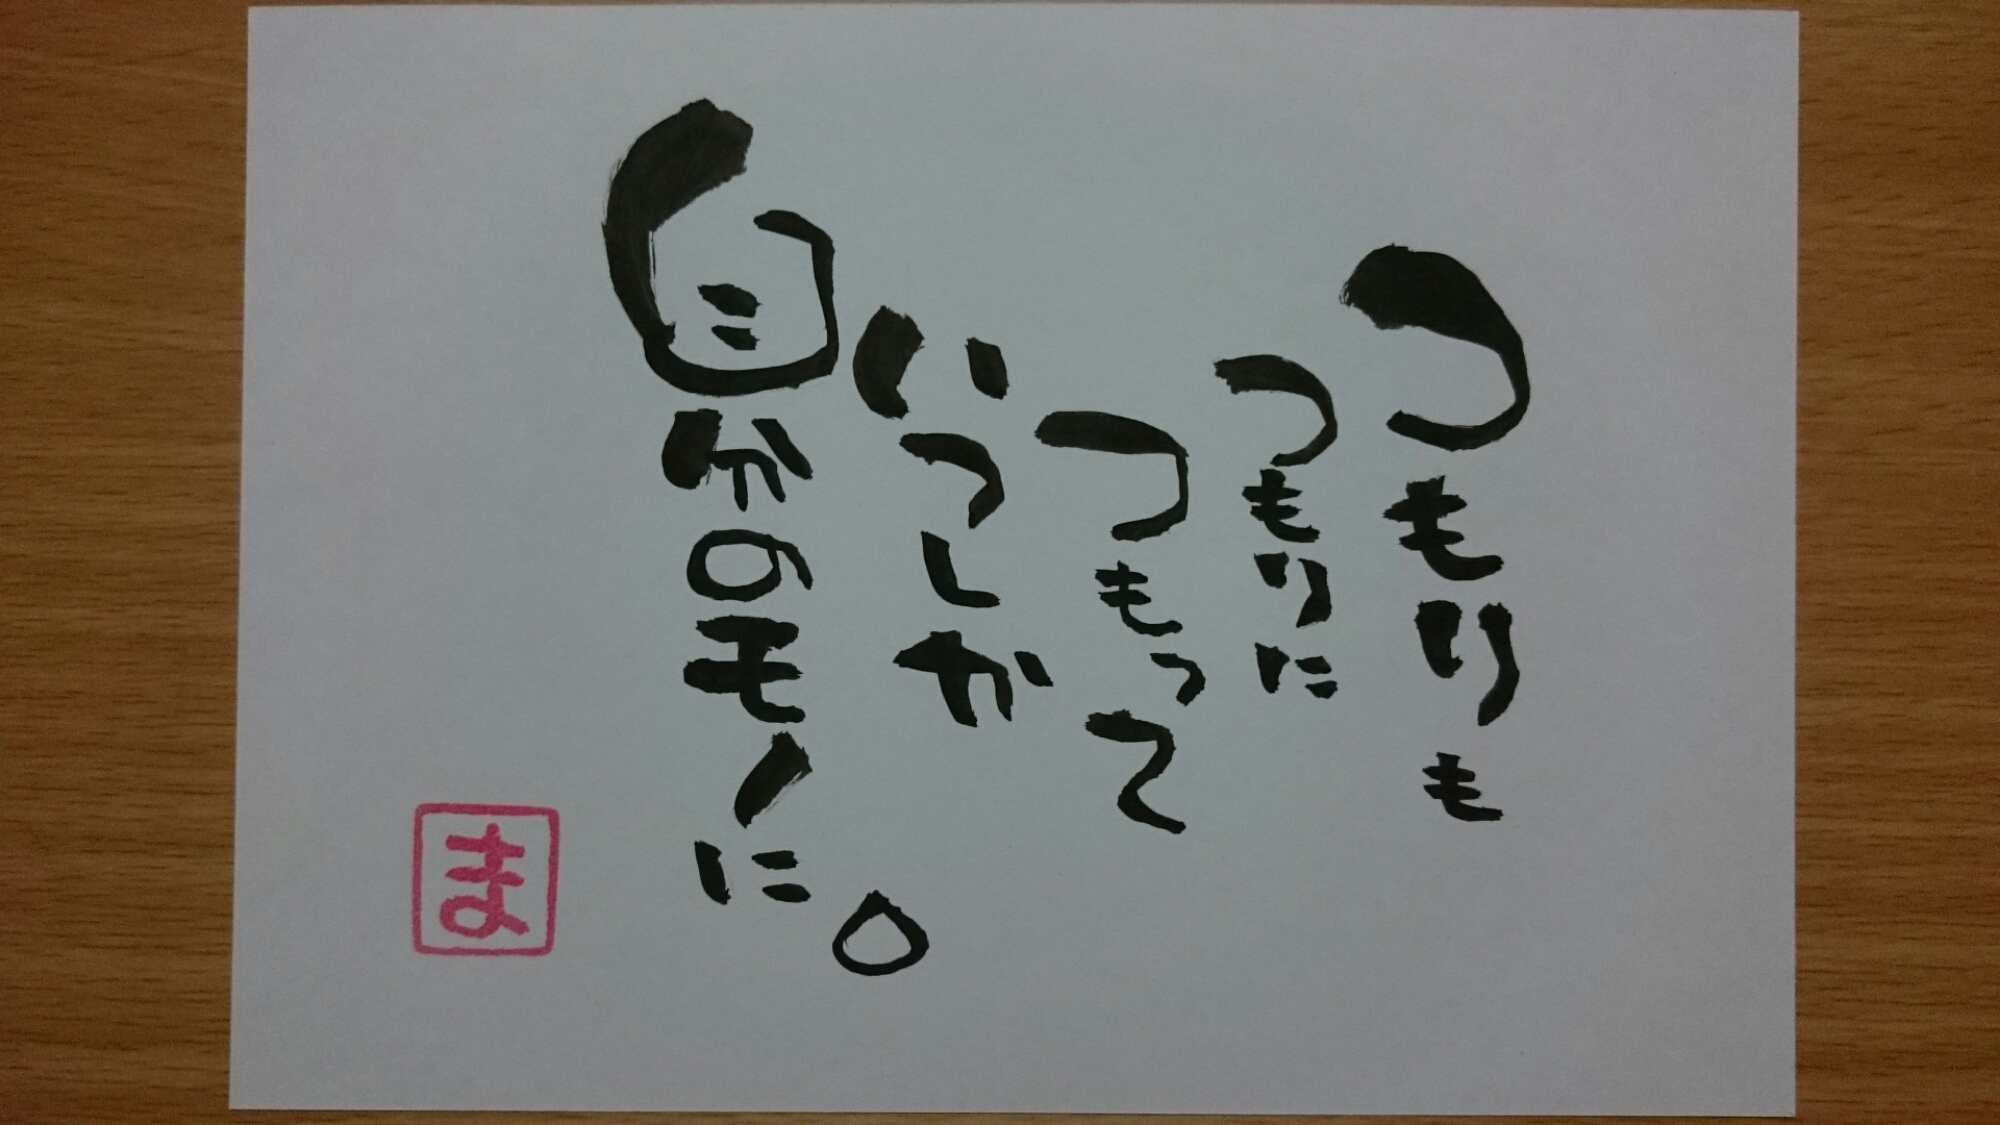 つもりも
つもりに
つもって
いつしか
自分のモノに。
ま